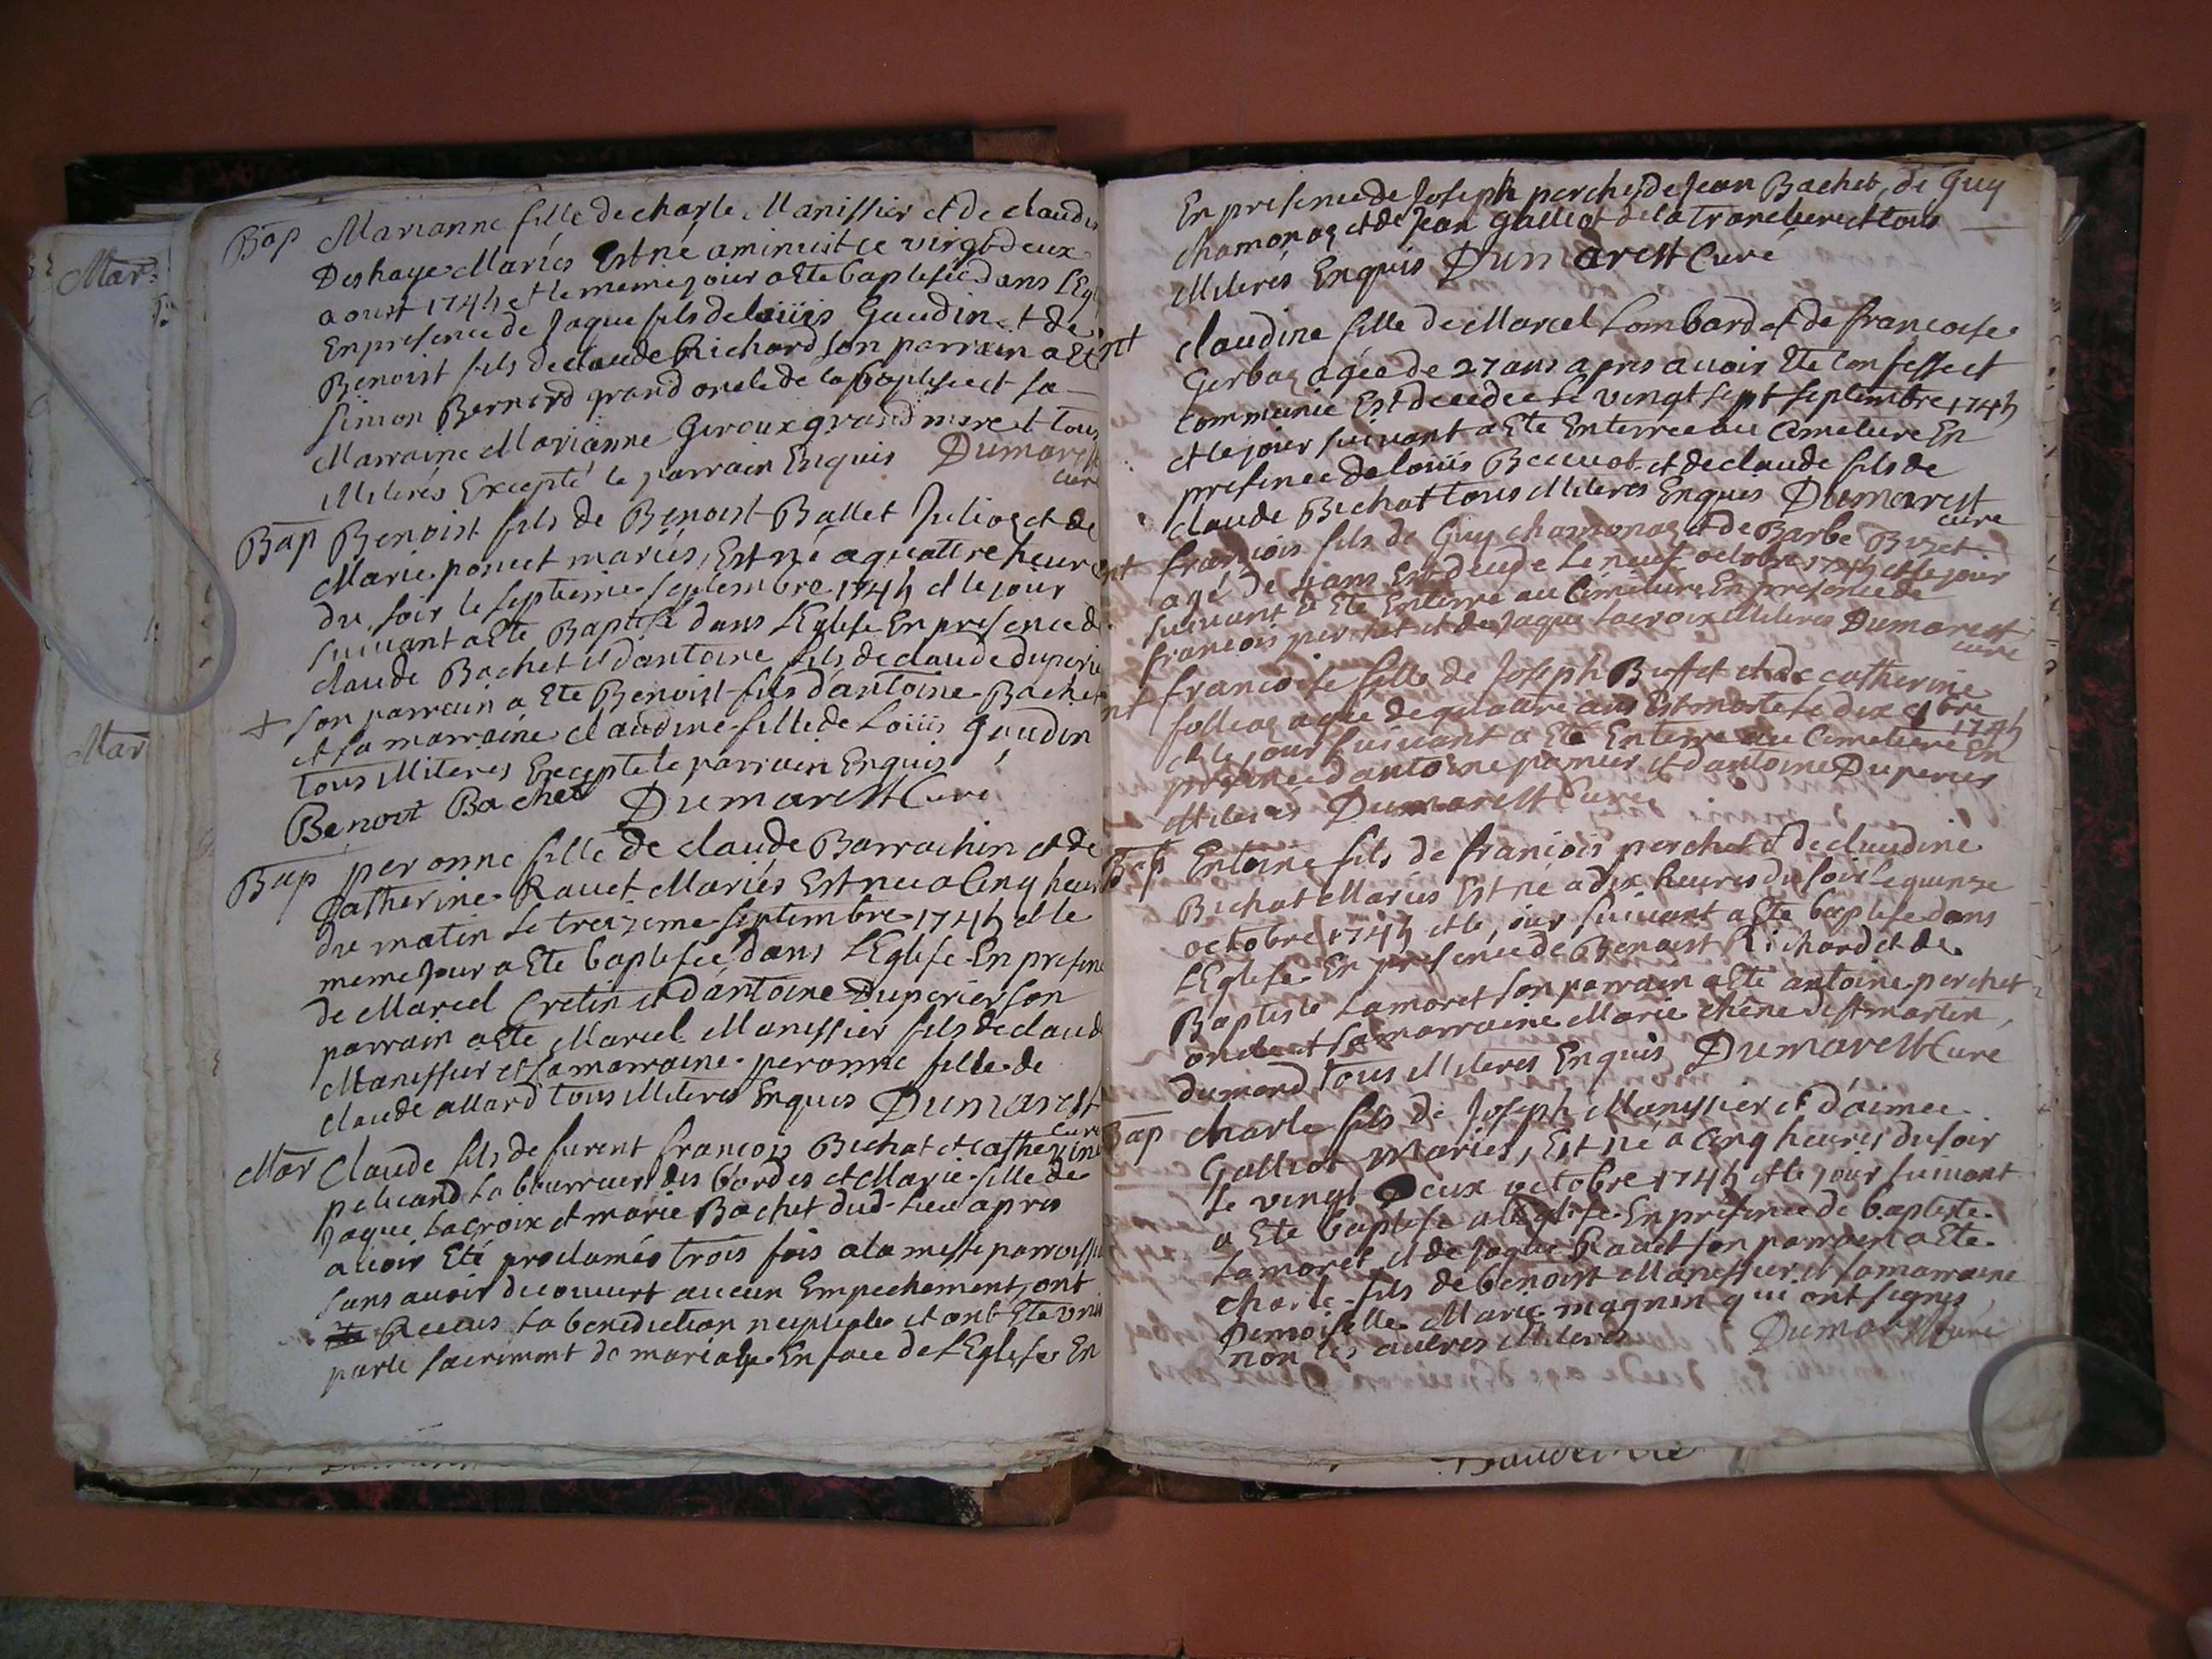 Mar
Mar
Bap Marianne fille de charle Manissier et de claudi
Deshaye Mariés Est né a minuit ce vingt deux
aoust 1744 et le meme jour a Ete baptisée dans l'Egl
En presence de Jaque fils de loüis Gaudin et de
Benoist fils de claude Richard son parrain a Eté
simon Bernard grand oncle de la baptisée et sa
Marraine Marianne Giroux grand mere et tous
Illiterés Excepté le parrain Enquis Dumarest
curé
Bap Benoist fils de Benoist Ballet Juliog et de
Marie poncet mariés, Est né a quattre heur
du soir le septieme septembre 1744 et le jour
suivant a Eté Baptisé dans l'Eglise En presence d
claude Bachet et d'antoine fils de claude duperie
+ son parrain a Ete Benoist fils d'antoine Bachet
et sa marraine claudine fille de Loüis gaudin
tous Illiteres Excepté le parrain Enquis
Benoit Bachet Dumarest Curé
Bap peronne fille de claude Barrachin et de
Catherine Ravet Mariés Est nee a Cinq heur
du matin le treizieme septembre 1744 et le
meme jour a Ete baptisée dans l'Eglise En presen
de Marcel Cretin et d'antoine Duperier son
parrain a Ete Marcel Manissier fils de claud
Manissier et sa marraine peronne fille de
claude allard tous Illiteres Enquis Dumarest
curé
Mar Claude fils de furent francois Bichat et Catherine
pelicand Labourreur des bordes et Marie fille de
Jaque Lacroix et marie Bachet dud. lieu apres
avoir Eté proclamés trois fois a la messe parroissi
sans avoir decouvert aucun Empechement, ont
Receus la benediction nuptiale et ont Ete unis
par le sacrement de mariage En face de l'Eglise En
En presence de Joseph perchet de Jean Bachet, de Guy
chamonag et de Jean galliot de la trancliere et tous
Illiterés Enquis Dumarest Curé
nt claudine fille de Marcel Lombard et de francoise
Gerbag agée de 27 ans apres avoir Ete Confessé et
Communié Est decedée le vingt sept septembre 1744
et le jour suivant a Ete Enterree au Cimetiere En
presence de loüis Beccuot et de claude fils de
claude Bichat tous Illiteres Enquis Dumarest
cure
nt francois fils de Guy chamonag et de Barbe Buget
agé de 4 ans Est decedé le neuf octobre 1744 et le jour
suivant a Ete Enterré au Cimetiere En presence de
francois perchet et de Jaque Lacroix Illiteres Dumarest
cure
nt francoise fille de Joseph Buffet et de catherine
folliag agée de quattre ans Est morte le dix 8bre
1744
et le jour suivant a Ete Enterre au Cimetiere En
presence d'antoine pomier et d'antoine Duperier
Illiterés Dumarest Curé
Bap Entoine fils de francois perchet et de claudine
Bichat Mariés Est né a dix heures du soir le quinze
octobre 1744 et le jour suivant a Ete baptise dans
l'Eglise En presence de Benoist Richard et de
Baptiste Lamoret son parrain a Ete antoine perchet
oncle et sa marraine Marie chêne de St martin
du mond tous Illiteres Enquis Dumarest Cure
Bap charle fils de Joseph Manissier et d'aimee
Galliot Mariés, Est né a Cinq heures du soir
le vingt Deux octobre 1744 et le jour suivant
a Ete baptisé a l'Eglise En presence de baptiste
Lamoret et de Jaque Ravet son parrain a Ete
charle fils de benoist Manissier et sa marraine
Demoiselle Marie magnin qui ont signes
non les autres Illiteres Dumarest cure